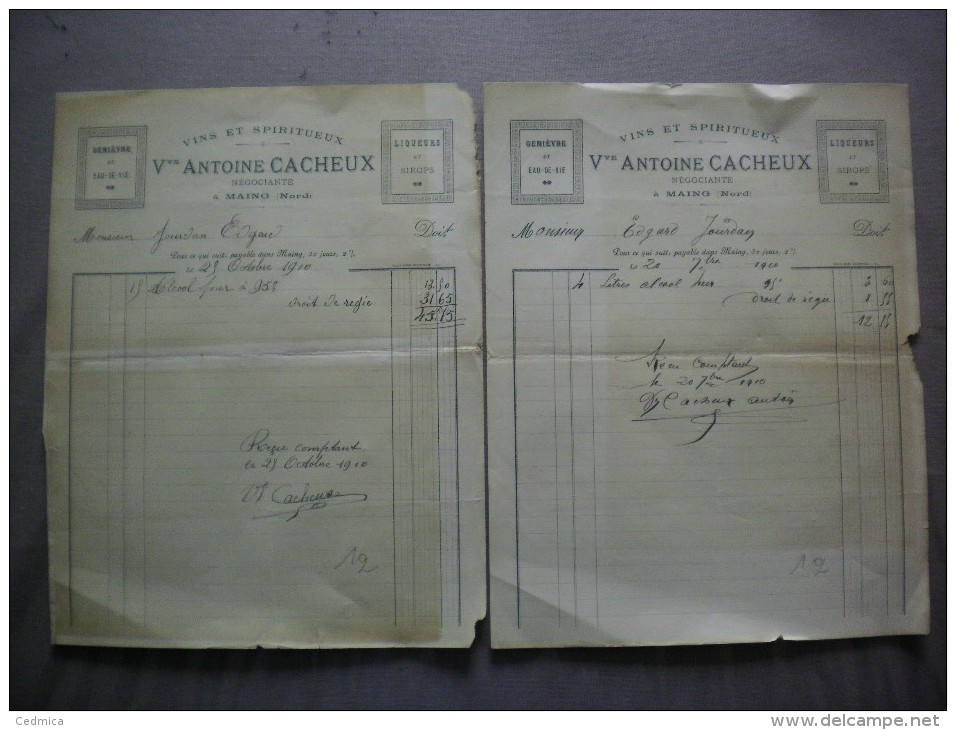 VINS ET SPIRITUEUX
GENIÈVRE
ET
EAU-DE-VIE
LIQUEURS
ET
SIROPS
Vve ANTOINE CACHEUX
NÉGOCIANTE
à MAING (Nord)
Monsieur Jourdan Edgard Doit
Pour ce qui suit, payable dans Maing, 30 jours, 2%
le 28 Octobre 1910
15 Alcool pur à 95° 13 50
droit de regie 31 65
45 15
Reçu comptant
le 28 Octobre 1910
Vve Cacheux
19
VINS ET SPIRITUEUX
GENIÈVRE
ET
EAU-DE-VIE
LIQUEURS
ET
SIROPS
Vve ANTOINE CACHEUX
NÉGOCIANTE
à MAING (Nord)
Monsieur Edgard Jourdan Doit
Pour ce qui suit, payable dans Maing, 30 jours, 2%
le 20 7bre 1910
4 Litres alcool pur 95° 3 60
droit de régie 8
12
Reçu comptant
le 20 7bre 1910
Cacheux
19
Cedmica
delcampe.net